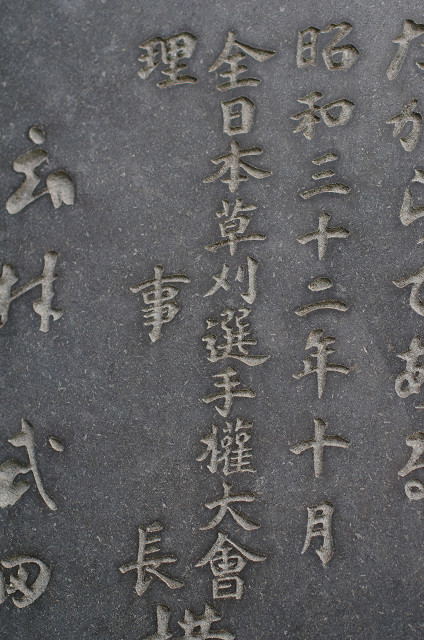 たからである
昭和三十二年十月
全日本草刈選手權大會
理事長
武田